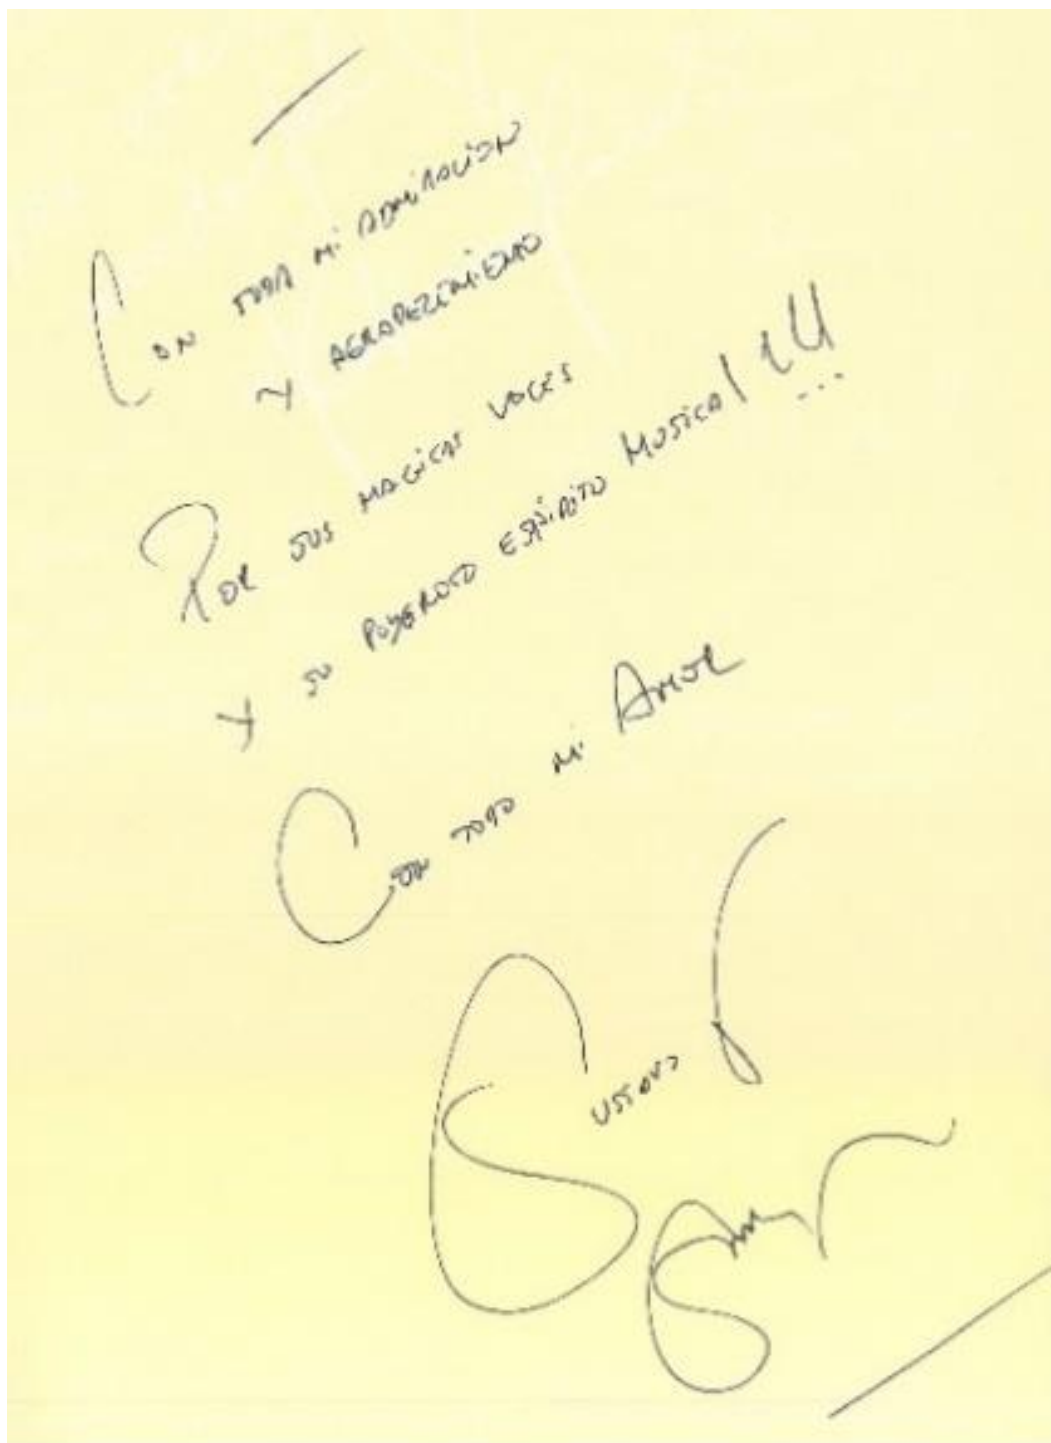 Con toda mi admiración
y agradecimiento
Por sus magicas voces
y su poderoso espíritu Musical!!!...
Con todo mi Amor
Gustavo